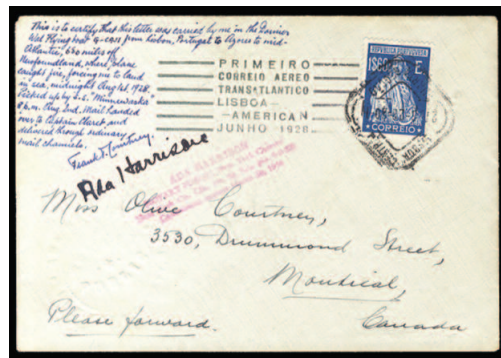 This is to certify that this letter was carried by me in the Dornier
Wal Flying boat G-CAGI from Lisbon, Portugal to Azores to mid-
Atlantic, 660 miles off
Newfoundland, where plane
caught fire, forcing me to land
in sea, midnight Aug 1st, 1928.
Picked up by S.S. "Minnewaska"
6 p.m. Aug 2nd. Mail handed
over to British Consul and
delivered through ordinary
mail channels.
Frank T. Courtney.
Ada Harrison
PRIMEIRO
CORREIO AEREO
TRANSATLANTICO
LISBOA-
-AMERICAN
JUNHO 1928
REPUBLICA PORTUGUESA
1$60 E.
CORREIO
ADA HARRISON
NOTARY
Miss Olive Courtney,
3530, Drummond Street,
Montreal,
Canada
Please forward.